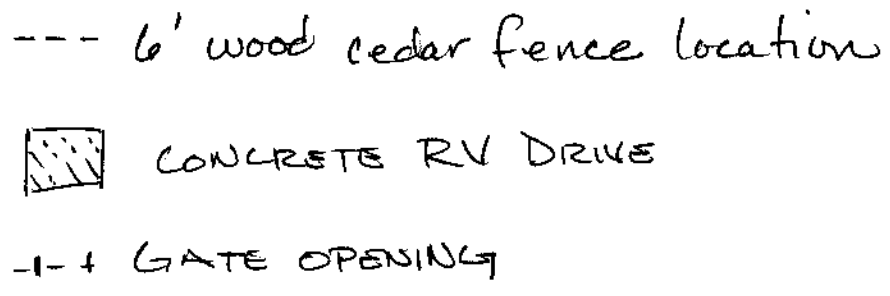 6' wood cedar fence location
CONCRETE RV DRIVE
GATE OPENING